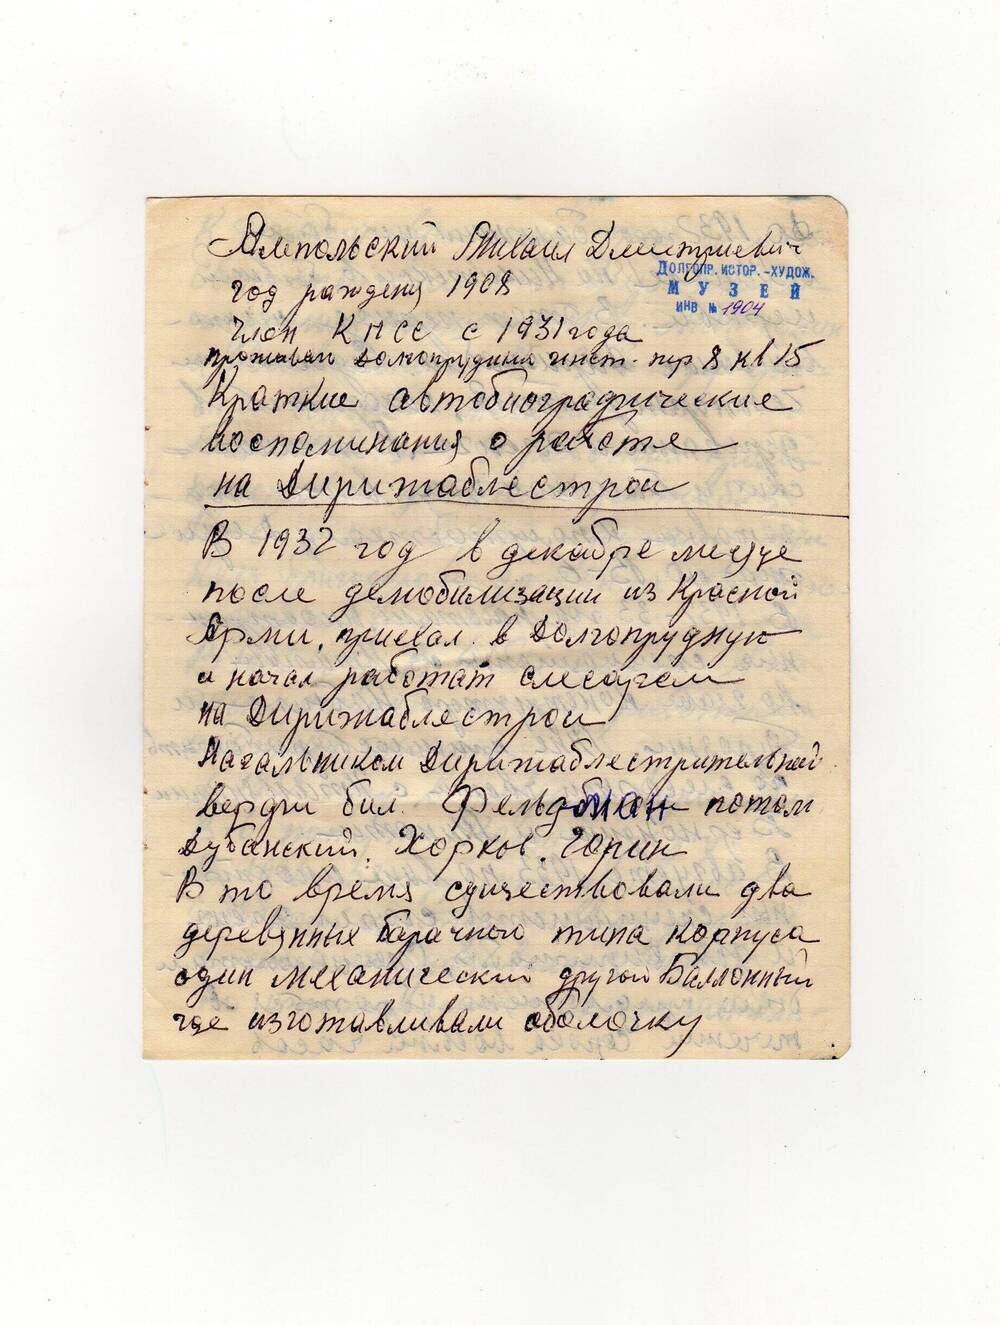 Ямпольский Михаил Дмитриевич
ДОЛГОПР. ИСТОР.-ХУДОЖ.
МУЗЕЙ
ИНВ № 1904
год рождения 1908
член КПСС с 1931 года
прожываю Долгопрудная инст. пер 8 кв 15
Краткие автобиографические
воспоминания о работе
на Дирижаблестрои
В 1932 год в декабре месяце
после демобилизации из Красной
Арми, приехал в Долгопрудную
и начал работат слесарем
на Дирижаблестрои
Начальником Дирижаблестрительной
верфи бил. Фельдман потом
Дубанский. Хорков. Гарин
В то время существовали два
деревянных барачного типа корпуса
один механический другой Баллонный
где изготавливали оболочку